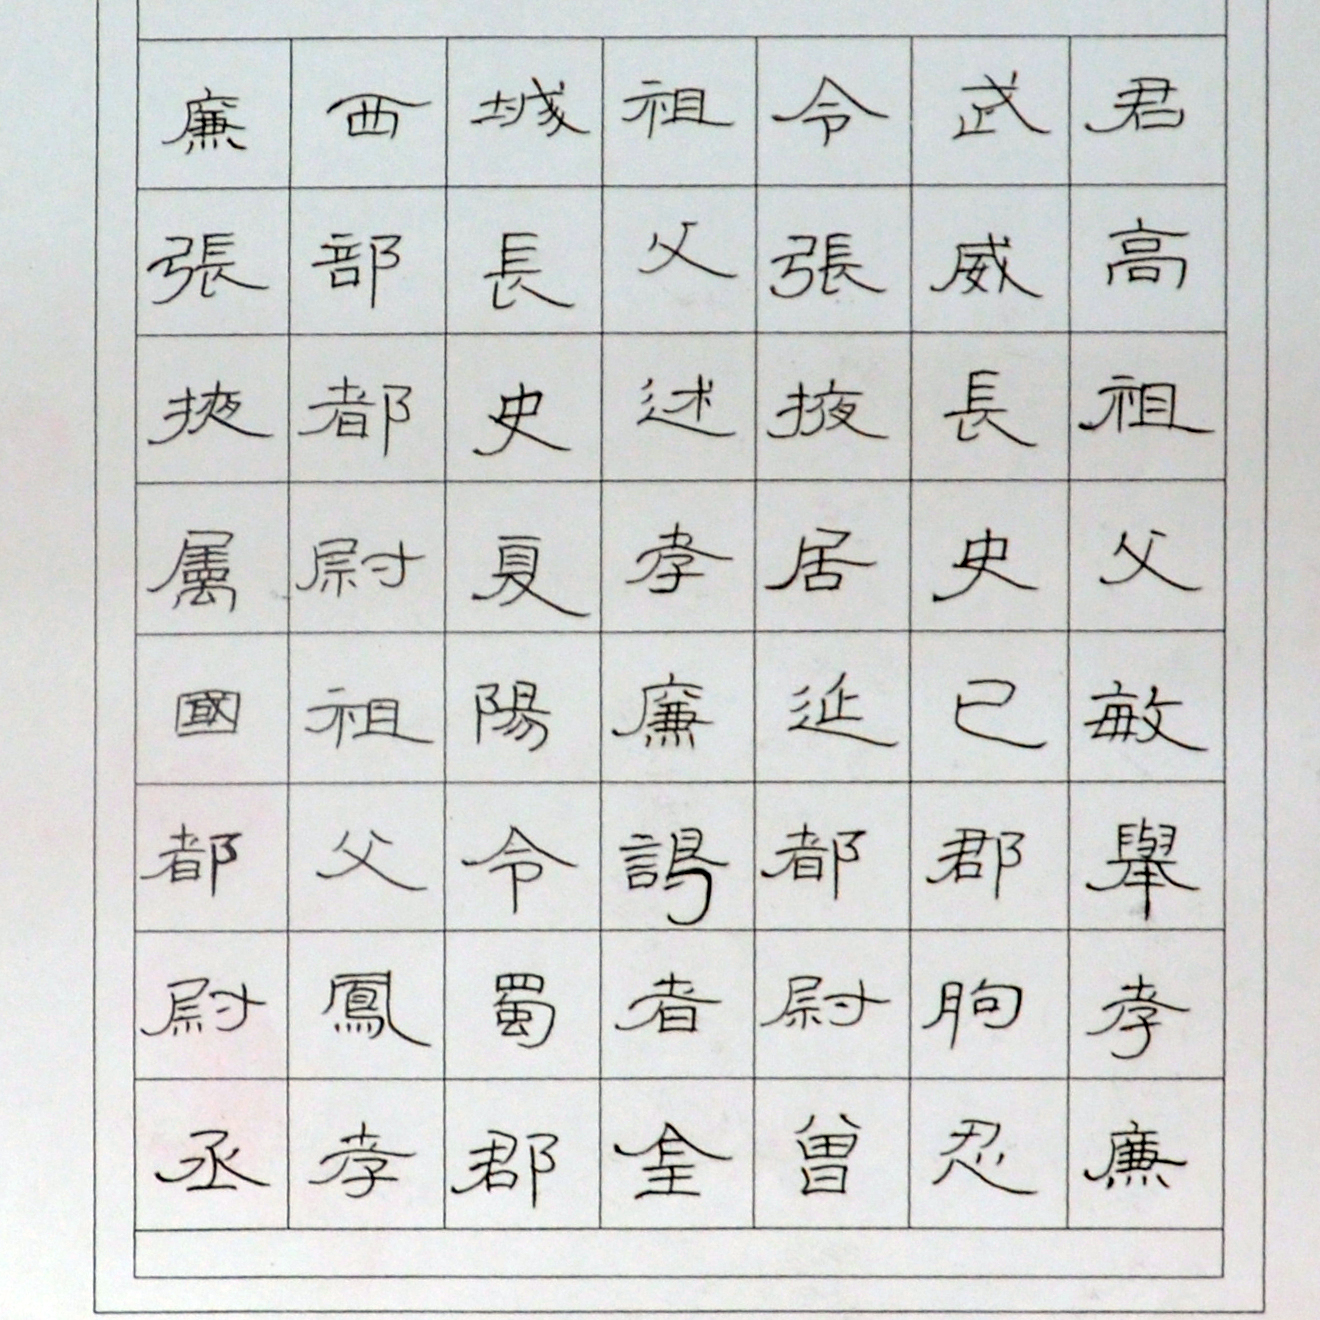 君高祖父敏舉孝廉
武威長史巳郡朐忍
令張掖居延都尉曾
祖父述孝廉謁者金
城長史夏陽令蜀郡
西部都尉祖父鳳孝
廉張掖屬國都尉丞